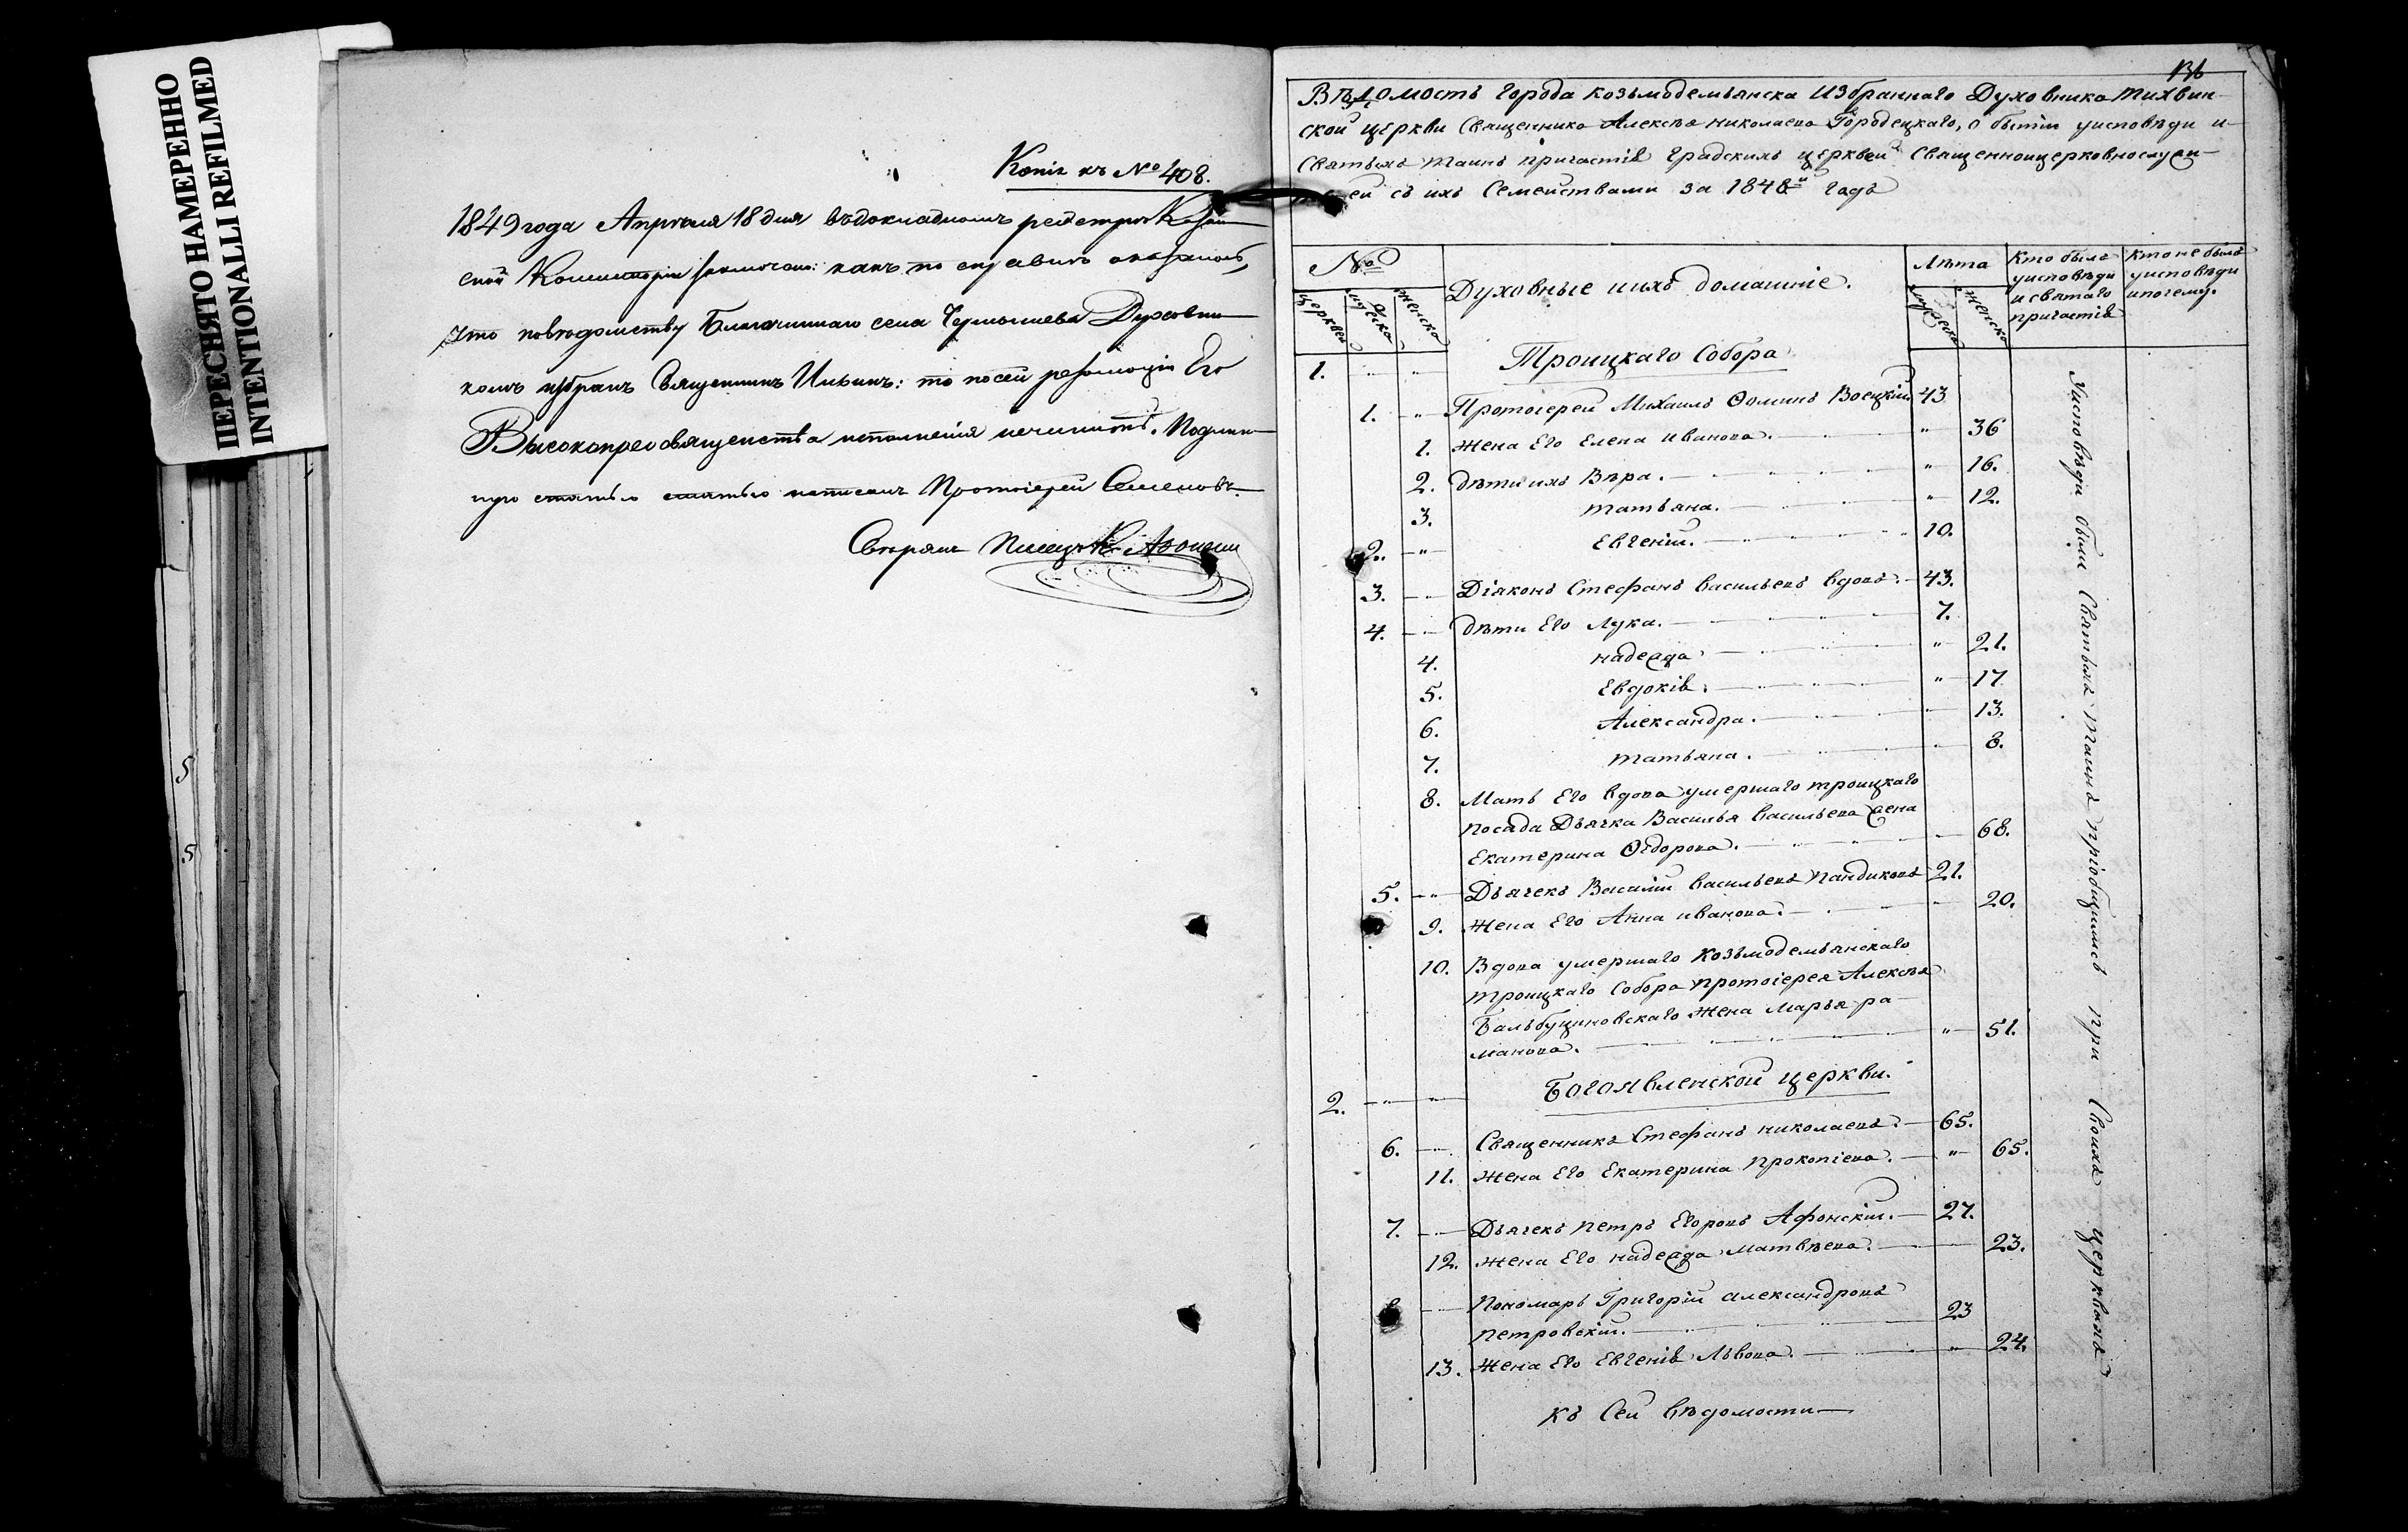 ПЕРЕСНЯТО НАМЕРЕННО
INTENTIONALLI REFILMED
5
5
Копія къ № 408.
1849 года Апрѣля 18 дня въ докладномъ реестрѣ Казан-
ской Консисторіи заключено: какъ по справкѣ оказалось,
что по вѣдомству Благочиннаго села Духовни-
комъ избранъ Священникъ Ильинъ: то по сей резолюціи Его
Высокопреосвященства исполненія не чинить. Подлин-
ную статью статью написалъ Протоіерей Семеновъ.
Свѣрялъ Писецъ
136
Вѣдомость города Козьмодемьянска Избраннаго Духовника Тихвин-
ской церкви Священника Алексѣя Николаева Городецкаго, о бытіи уисповѣди и
Святыхъ Таинъ причастія градскихъ церквей Священноцерковнослужи-
телей съ ихъ Семействами за 1848й годъ
№
Церквей
мужеска
женска
Духовные и ихъ домашніе.
Лѣта
мужеска
женска
Кто былъ
уисповѣди
и святаго
причастія
Кто не былъ
уисповѣди
и почему.
1. " " Троицкаго Собора
1. " Протоіерей Михаилъ Ѳоминъ Воецкій 43
1. Жена Его Елена Иванова. " 36
2. дѣти ихъ Вѣра. " 16.
3. Татьяна. " 12.
2. " Евгеній. 10.
3. " Діяконъ Стефанъ Васильевъ вдовъ. 43.
4. " дѣти Его Лука. 7.
4. надежда " 21.
5. Евдокія. " 17
6. Александра. 13.
7. Татьяна. 8.
8. Мать Его вдова умершаго троицкаго
посада Дьячка Василья Васильева жена
Екатерина Ѳедорова. 68.
5. " Дьячекъ Василій Васильевъ Пандиковъ 21.
9. Жена Его Анна Иванова. 20.
10. Вдова умершаго Козьмодемьянскаго
троицкаго Собора протоіерея Алексѣя
Бальбуциновскаго Жена Марья ра-
манова. " 51.
2. " " Богоявленской церкви.
6. " Священникъ Стефанъ Николаевъ. 65.
11. Жена Его Екатерина Прокопіева. " 65.
7. " Дьячекъ Петръ Егоровъ Афонскій. 27.
12. Жена Его надежда Матвѣева. 23.
8 " Пономарь Григорій Александровъ
Петровскій. 23
13. Жена Его Евгенія Львова. " 24.
Къ Сей вѣдомости
Уисповѣди были Святыхъ Таинъ пріобщились при Своихъ церквахъ